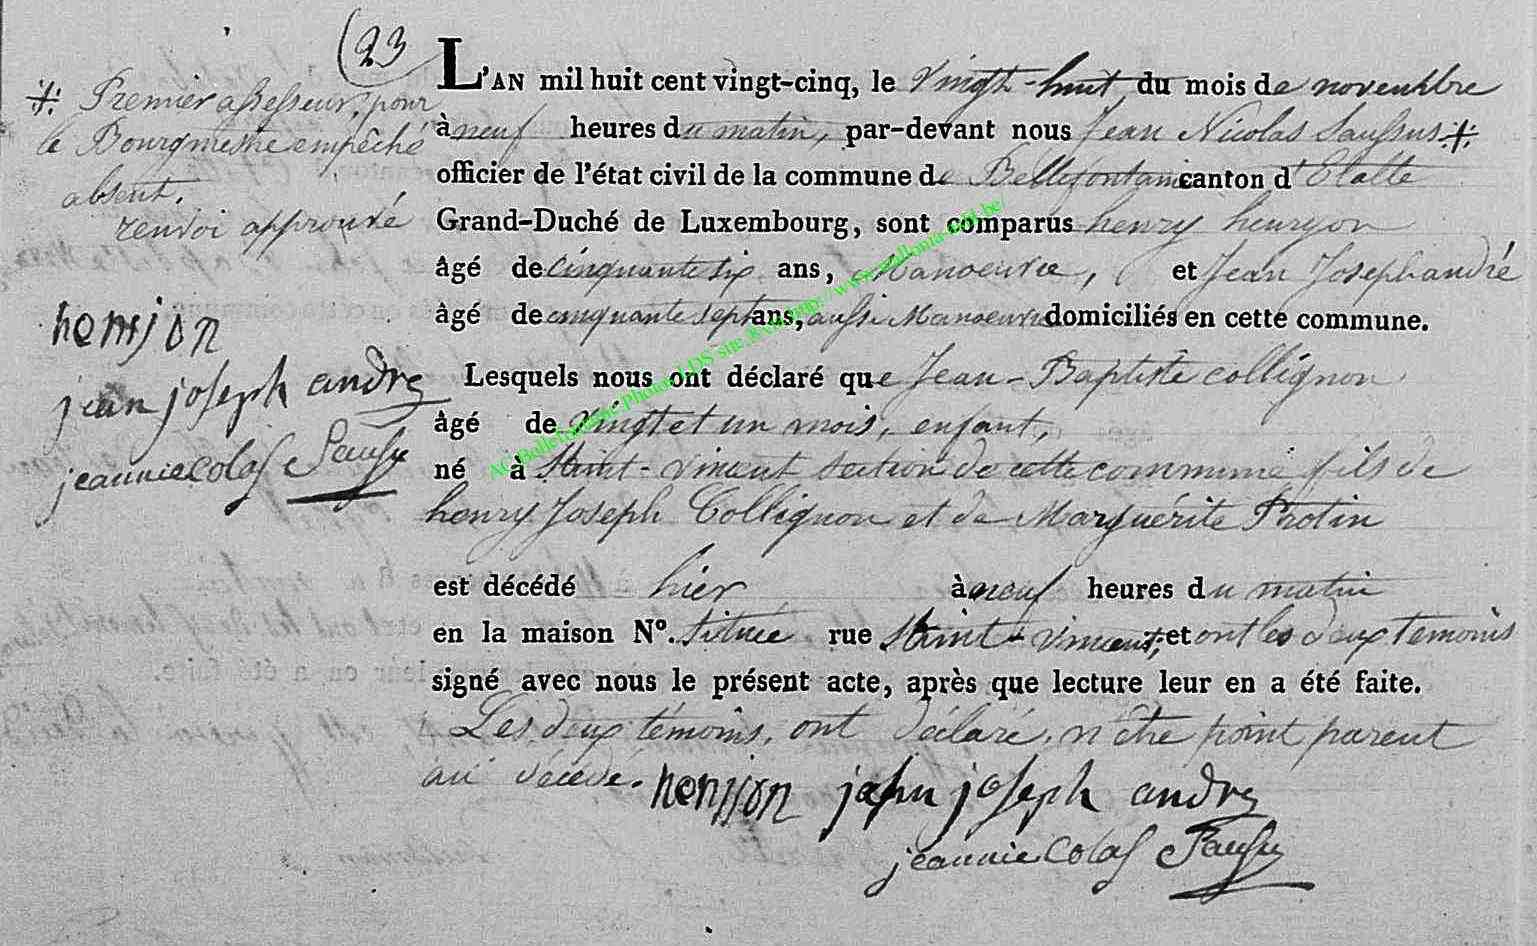 (23
⁜ Premier assesseur, pour
le Bourgmestre empêché
absent.
renvoi approuvé
henrjon
jean joseph andre
jeannicolas Saussu
L'AN mil huit cent vingt-cinq, le vingt-huit du mois de novembre
à neuf heures du matin, par-devant nous Jean Nicolas Saussus ⁜
officier de l'état civil de la commune de Bellefontaine canton d'Etalle
Grand-Duché de Luxembourg, sont comparus henry henryon
âgé de cinquante six ans, Manoeuvre, et Jean Joseph andré
âgé de cinquante sept ans, aussi Manoeuvre domiciliés en cette commune.
Lesquels nous ont déclaré que Jean-Baptiste collignon
âgé de vingt et un mois, enfant,
né à Saint-vincent section de cette commune fils de
henry Joseph Collignon et de Marguérite Protin
est décédé hier à neuf heures du matin
en la maison N°. située rue Saint-vincent; et ont les deux temoins
signé avec nous le présent acte, après que lecture leur en a été faite.
Les deux témoins, ont déclaré, n'être point parent
au décédé.
henrjon jean joseph andre
jeannicolas Saussu